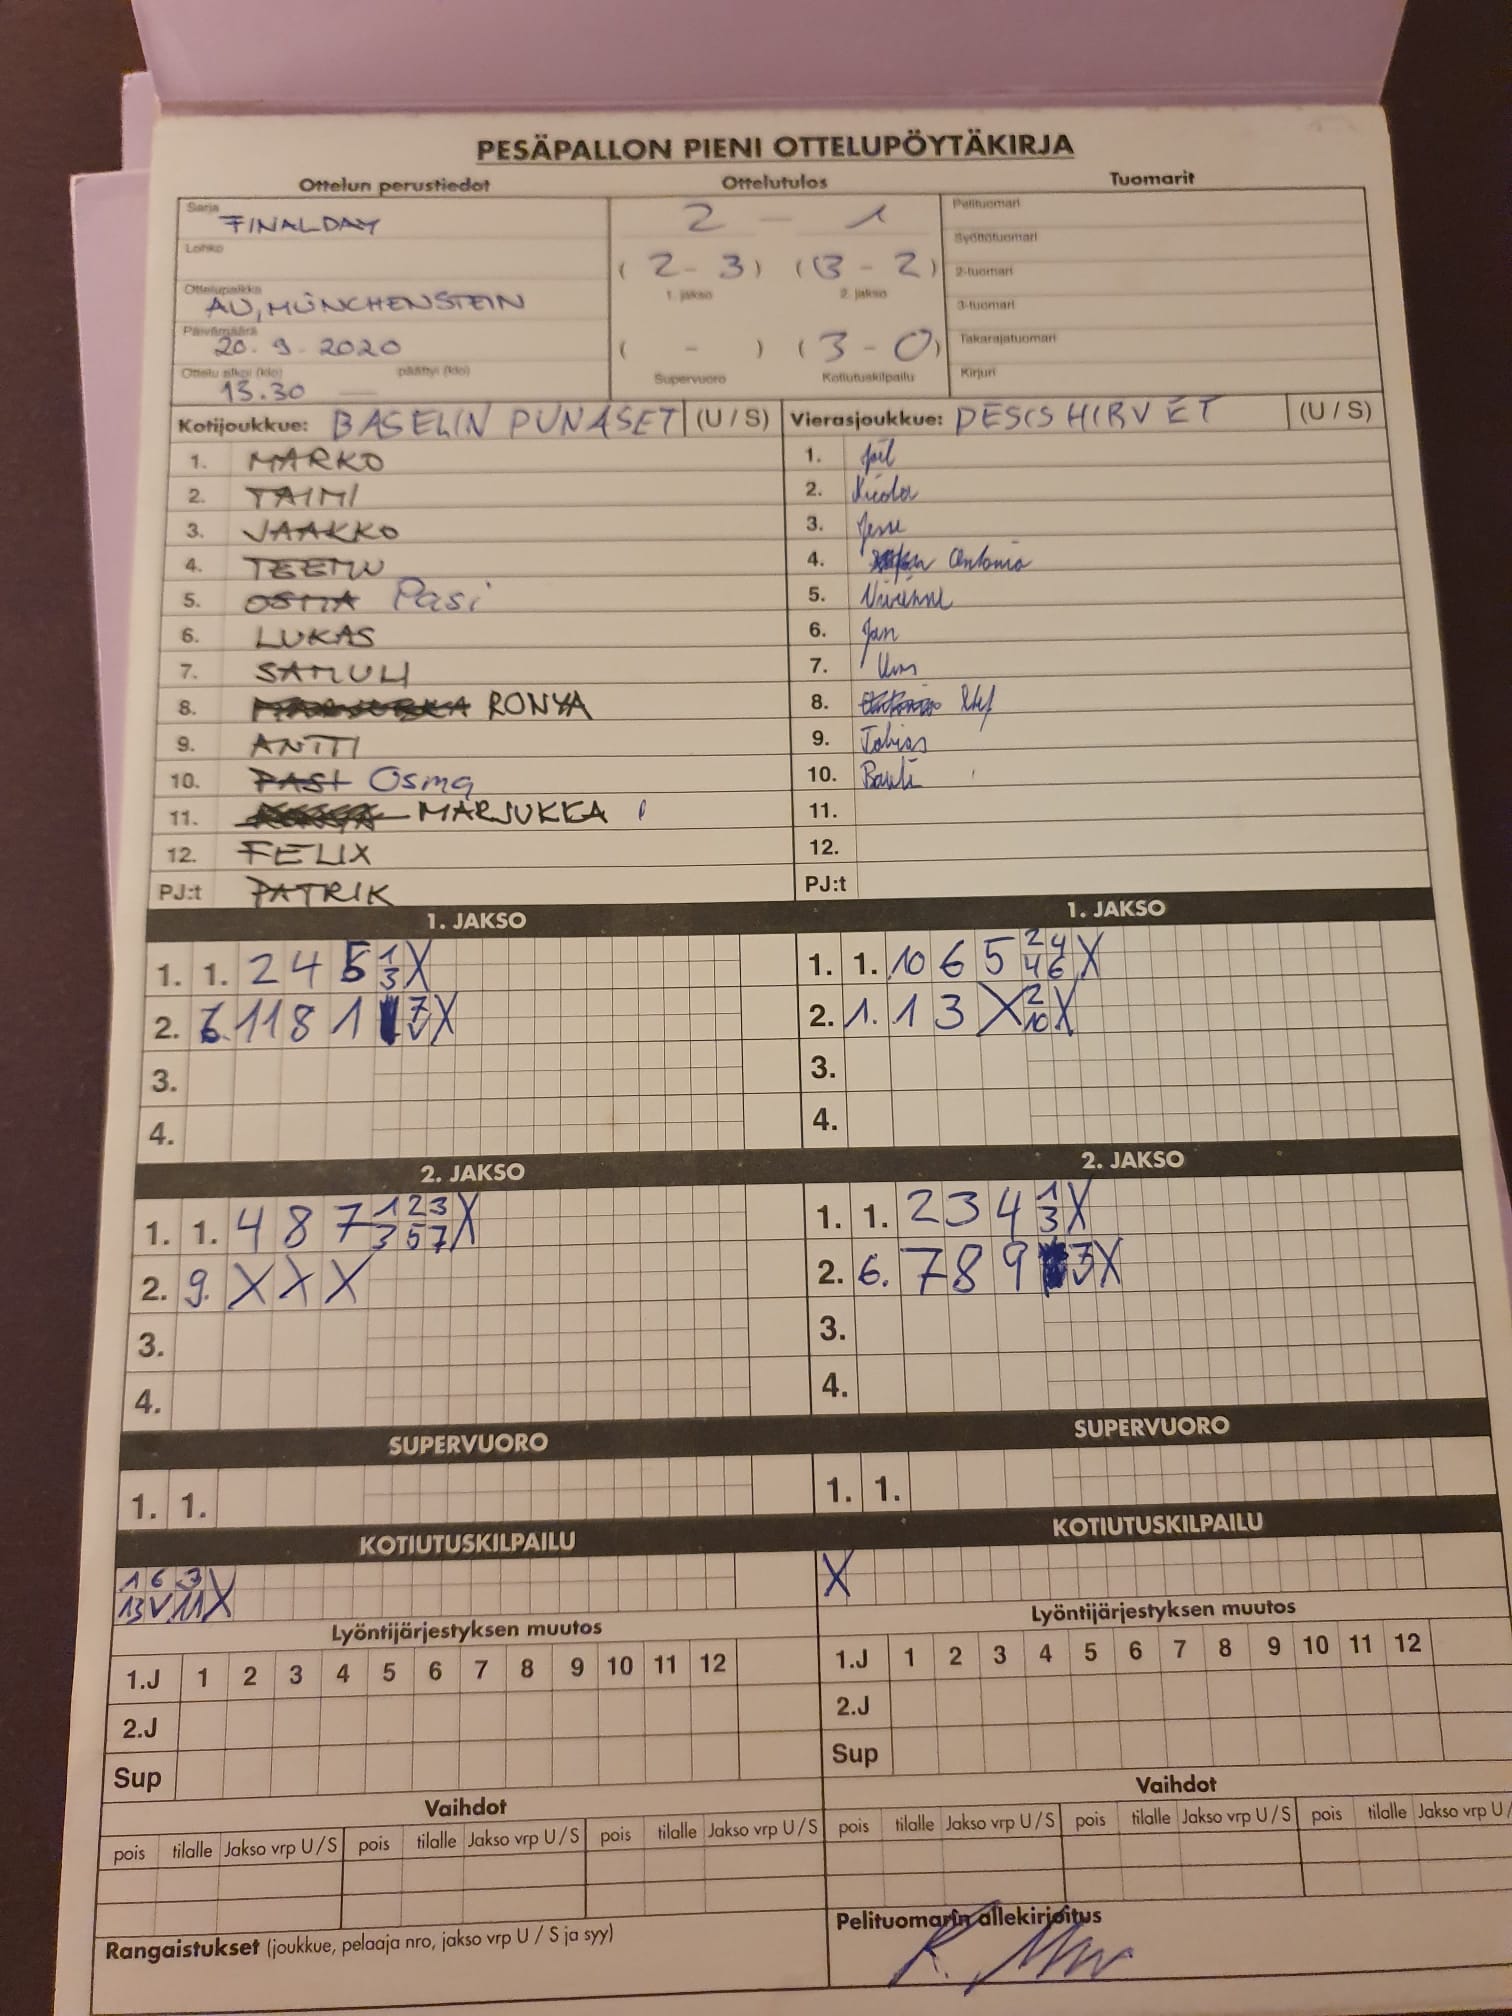 PESÄPALLON PIENI OTTELUPÖYTÄKIRJA
Ottelun perustiedot Ottelutulos Tuomarit
Sarja FINALDAY 2 - 1 Pelituomari
Lohko (2 - 3) (3 - 2) Syöttötuomari
1. jakso 2. jakso 2-tuomari
Ottelupaikka AU, MÜNCHENSTEIN 3-tuomari
Päivämäärä 20. 9. 2020 ( - ) (3 - 0) Takarajatuomari
Ottelu alkoi (klo) 13.30 päättyi (klo) Supervuoro Kotiutuskilpailu Kirjuri
Kotijoukkue: BASELIN PUNASET (U / S) Vierasjoukkue: PESIS HIRVET (U / S)
1. MARKO 1.
2. TAIMI 2.
3. JAAKKO 3.
4. TEEMU 4. Antonia
5. OSMA Pasi 5.
6. LUKAS 6. Jan
7. SAMULI 7.
8. RONYA 8.
9. ANTTI 9. Tobias
10. PASI Osma 10.
11. MARJUKKA 11.
12. FELIX 12.
PJ:t PATRIK PJ:t
1. JAKSO 1. JAKSO
1. 1. 2 4 5 1 3 X 1. 1. 10 6 5 2 4 4 6 X
2. 6. 11 8 1 7 V X 2. 1. 1 3 X 2 10 X
3. 3.
4. 4.
2. JAKSO 2. JAKSO
1. 1. 4 8 7 1 2 3 3 5 7 X 1. 1. 2 3 4 1 3 X
2. 9. X X X 2. 6. 7 8 9 X
3. 3.
4. 4.
SUPERVUORO SUPERVUORO
1. 1. 1. 1.
KOTIUTUSKILPAILU KOTIUTUSKILPAILU
1 6 3 X
13 V 11 X
Lyöntijärjestyksen muutos Lyöntijärjestyksen muutos
1.J 1 2 3 4 5 6 7 8 9 10 11 12 1.J 1 2 3 4 5 6 7 8 9 10 11 12
2.J 2.J
Sup Sup
Vaihdot Vaihdot
pois tilalle Jakso vrp U / S pois tilalle Jakso vrp U / S pois tilalle Jakso vrp U / S pois tilalle Jakso vrp U / S pois tilalle Jakso vrp U / S pois tilalle Jakso vrp U /
Rangaistukset (joukkue, pelaaja nro, jakso vrp U / S ja syy) Pelituomarin allekirjoitus